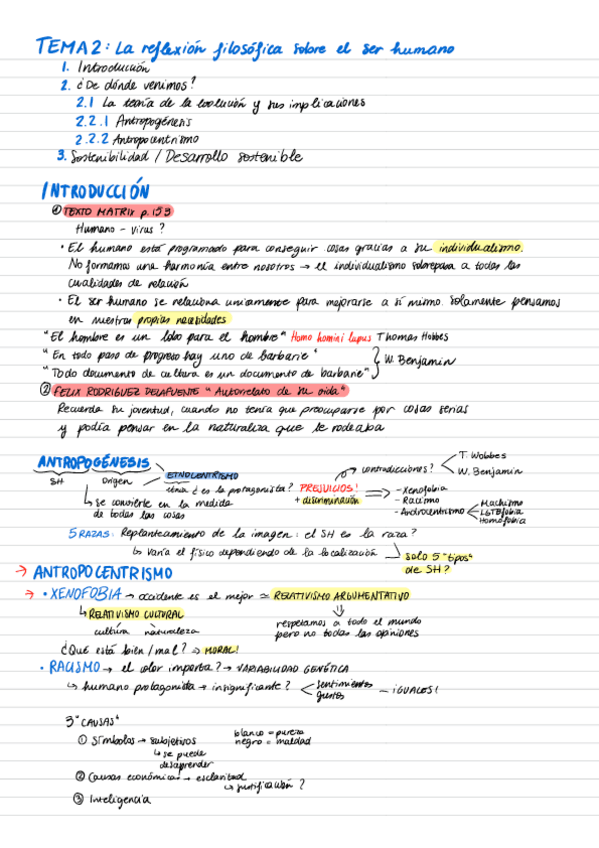 TEMA 2: La reflexión filosófica sobre el ser humano
1. Introducción
2. ¿De dónde venimos?
2.1 La teoría de la evolución y sus implicaciones
2.2.1 Antropogénesis
2.2.2 Antropocentrismo
3. Sostenibilidad / Desarrollo sostenible
INTRODUCCIÓN
① TEXTO MATRIX p. 159
Humano - virus?
• El humano está programado para conseguir cosas gracias a su individualismo.
No formamos una harmonía entre nosotros → el individualismo sobrepasa a todas las
cualidades de relación
• El ser humano se relaciona unicamente para mejorarse a sí mismo. Solamente pensamos
en nuestras propias necesidades
"El hombre es un lobo para el hombre" Homo homini lupus Thomas Hobbes
"En todo paso de progreso hay uno de barbarie"
"Todo documento de cultura es un documento de barbarie" } W. Benjamin
② FELIX RODRIGUEZ DELAFUENTE "Autorrelato de su vida"
Recuerda su joventud, cuando no tenía que preocuparse por cosas serias
y podía pensar en la naturaliza que le rodeaba
ANTROPOGÉNESIS
SH Origen
↳ se convierte en la medida
de todas las cosas
ETNOCENTRISMO
etnia ¿es la protagonista? PREJUICIOS!
+ discriminación
contradicciones?
T. Wobbes
W. Benjamin
- Xenofobia
- Racismo
- Androcentrismo
Machismo
LGTBIfobia
Homofobia
5 RAZAS: Replanteamiento de la imagen: el SH es la raza?
↳ Varía el físico dependiendo de la localización
solo 5 "tipos"
de SH?
→ ANTROPOCENTRISMO
→ • XENOFOBIA → occidente es el mejor ≃ RELATIVISMO ARGUMENTATIVO
↳ RELATIVISMO CULTURAL
cultura naturaleza
respetamos a todo el mundo
pero no todas las opiniones
¿Qué está bien/mal? ⇒ MORAL!
• RACISMO → el color importa? → VARIABILIDAD GENÉTICA
↳ humano protagonista → insignificante?
sentimientos
gustos
- ¡IGUALES!
3 "CAUSAS"
① Símbolos → subjetivos
blanco = pureza
negro = maldad
↳ se puede
desaprender
② Causas económicas → esclavitud
↳ justificación?
③ Inteligencia